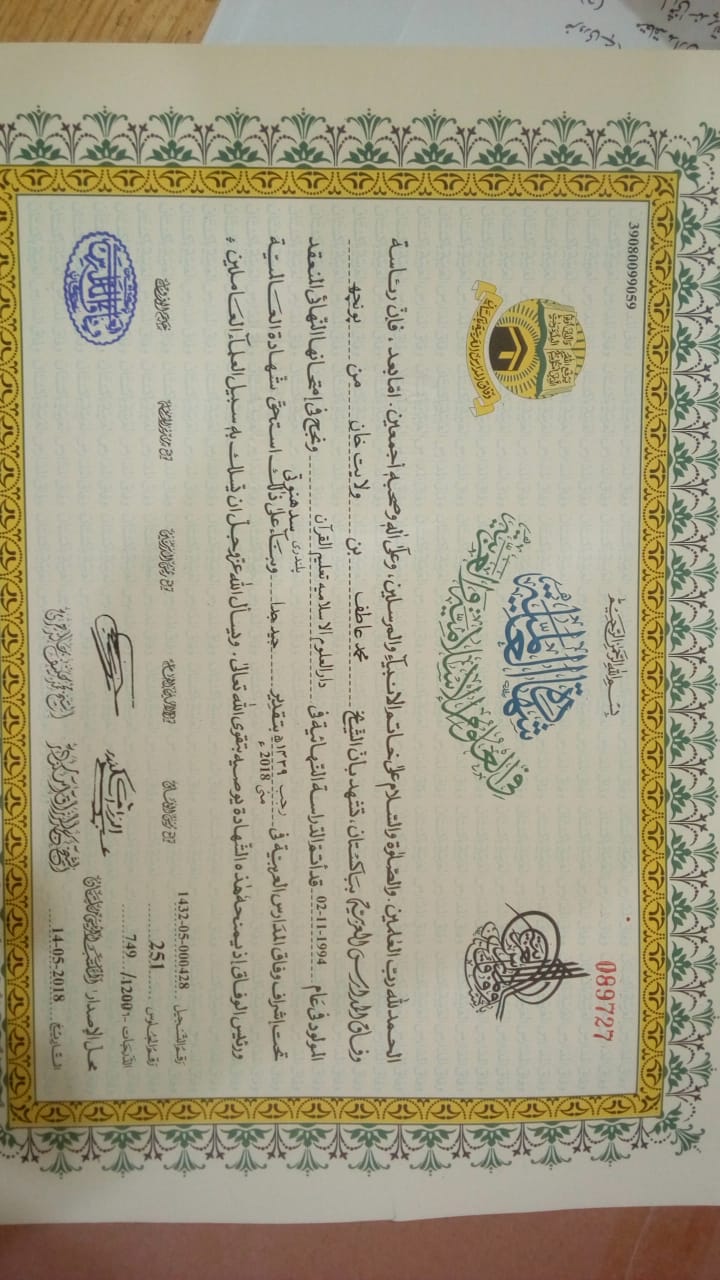 39080099059
بسم الله الرحمن الرحيم
089727
شهادة العالمية
في العلوم العربية والإسلامية
الحمد لله رب العلمين. والصلوة والسلام على خاتم الانبيآء والمرسلين، وعلى اله وصحبه اجمعين. امابعد، فان رئاسة
وفاق المدارس العربية بباكستان، تشهد بان الشيخ محمد عاطف بن ولايت خان من پونچھ
المولود في عام 02-11-1994 قد أتم الدراسة النهائية في دارالعلوم الاسلاميه تعليم القرآن ونجح في إمتحانها النهائي المنعقد
پلندری سدھنوتی
تحت اشراف وفاق المدارس العربية في رجب ١٤٣٩ھ بتقدير جيد جدا وبناءً على ذلك استحق شهادة العالمية
مئی 2018ء
ورئيس الوفاق إذ يمنحه هذه الشهادة يوصيه بتقوى الله تعالى، ويسأل الله عز وجل ان يسلك به سبيل العلمآء العاملين
رقم التسجيل 1432-05-000428
رقم الجلوس 251
الدرجات 749 /1200
محل الإصدار
التاريخ 14-05-2018